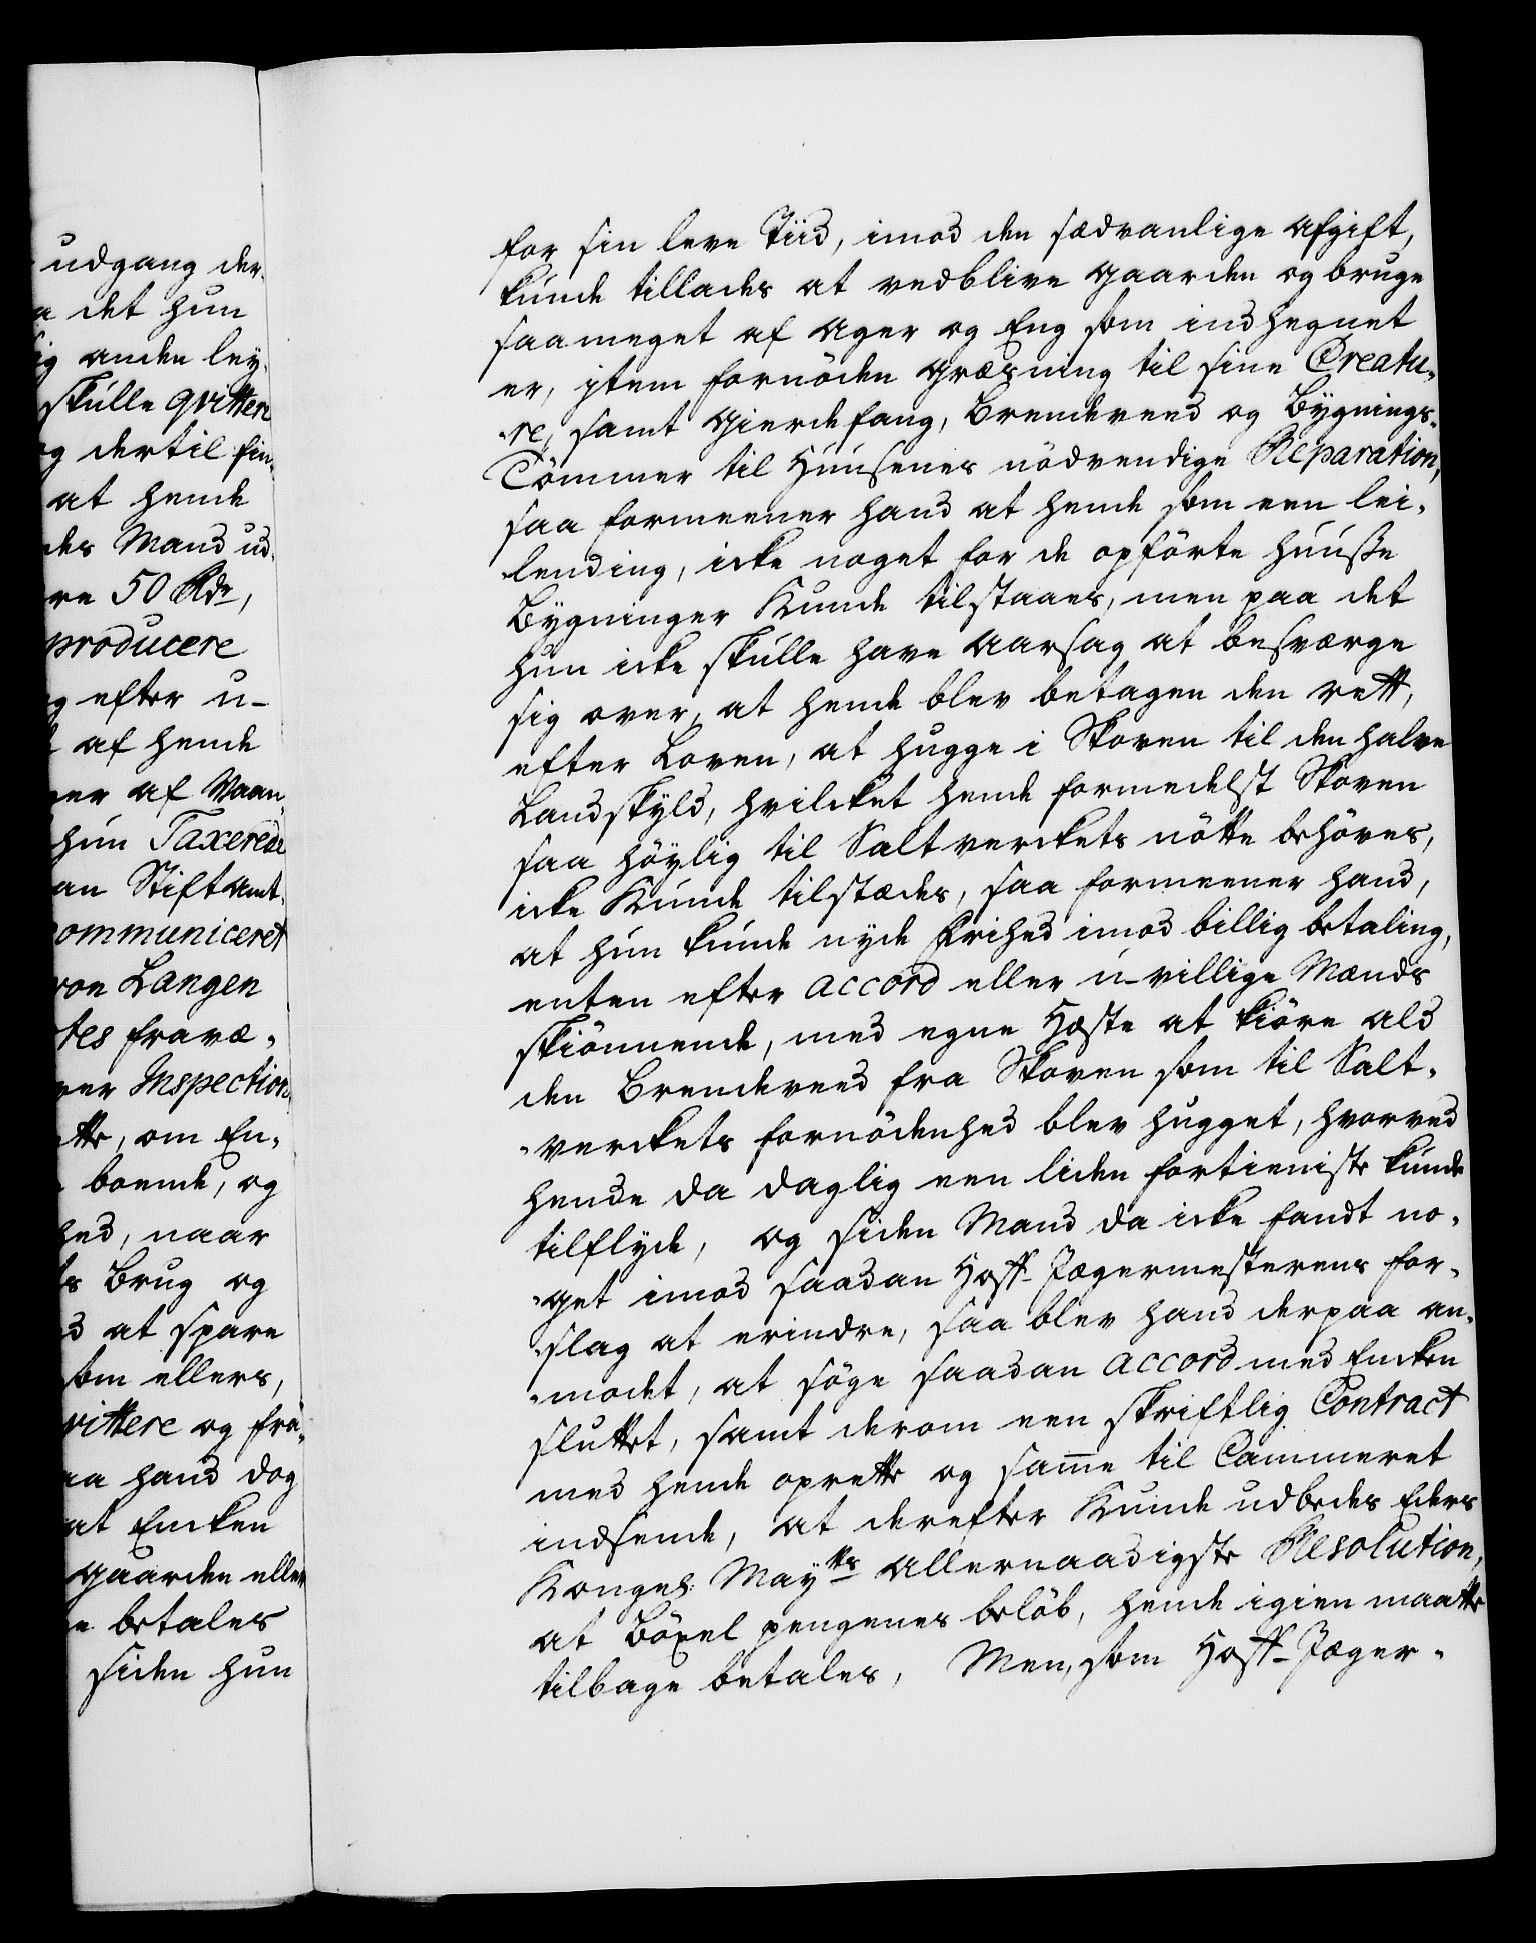 udgang der
det hun
ig anden ley
skulle qvittere
g dertil fin
at hende
des Mand ud
re 50 Rdr,
producere
g efter u-
af hende
er af Vaan
hun Taxerede
an Stiftamt
ommuniceret
von Langen
tes fravæ-
er Inspection
tte, om En-
boende, og
hed, naar
s Brug og
d at spare
som ellers,
vittere og fra-
aa hand dog
at Encken
gaarden eller
e betales
siden hun
for sin leve Tiid, imod den sædvanlige afgift,
kunde tillades at vedblive gaarden og bruge
saameget af ager og Eng som indhegnet
er, item fornöden græsning til sine Creatu-
-re, samt gierdefang, Brendeveed og Bygnings-
Tömmer til Huusenes nödvendige Reparation,
saa formeener hand at hende som een lei-
lending, icke noget for de opförte huusse
Bygninger kunde tilstaaes, men paa det
hun icke skulle have aarsag at besværge
sig over, at hende blev betagen den rett,
efter Loven, at hugge i Skoven til den halve
Landskyld, hvilcket hende formedelst Skoven
saa höylig til Saltverckets nötte behöves,
icke kunde tilstædes, saa formeener hand,
at hun kunde nyde Frihed imod billig betaling,
enten efter accord eller u-villige Mænds
skiönnende, med egne Hæste at kiöre ald
den Brendeveed fra Skoven som til Salt-
-verckets fornödenhed blev hugget, hvorved
hende da daglig een liden fortieniste kunde
tilflyde, og siden Mand da icke fandt no-
-get imod saadan Hoff-Jægermesterens for-
-slag at erindre, saa blev hand derpaa an-
-modet, at söge saadan accord med Encken
sluttet, samt derom een skriftlig Contract
med hende oprette og samme til Cammeret
indsende, at derefter kunde udbedes Eders
Kongel: Mayts allernaadigste Resolution,
at Böxel pengenes belöb, hende igien maatte
tilbage betales, Men, som Hoff-Jæger-